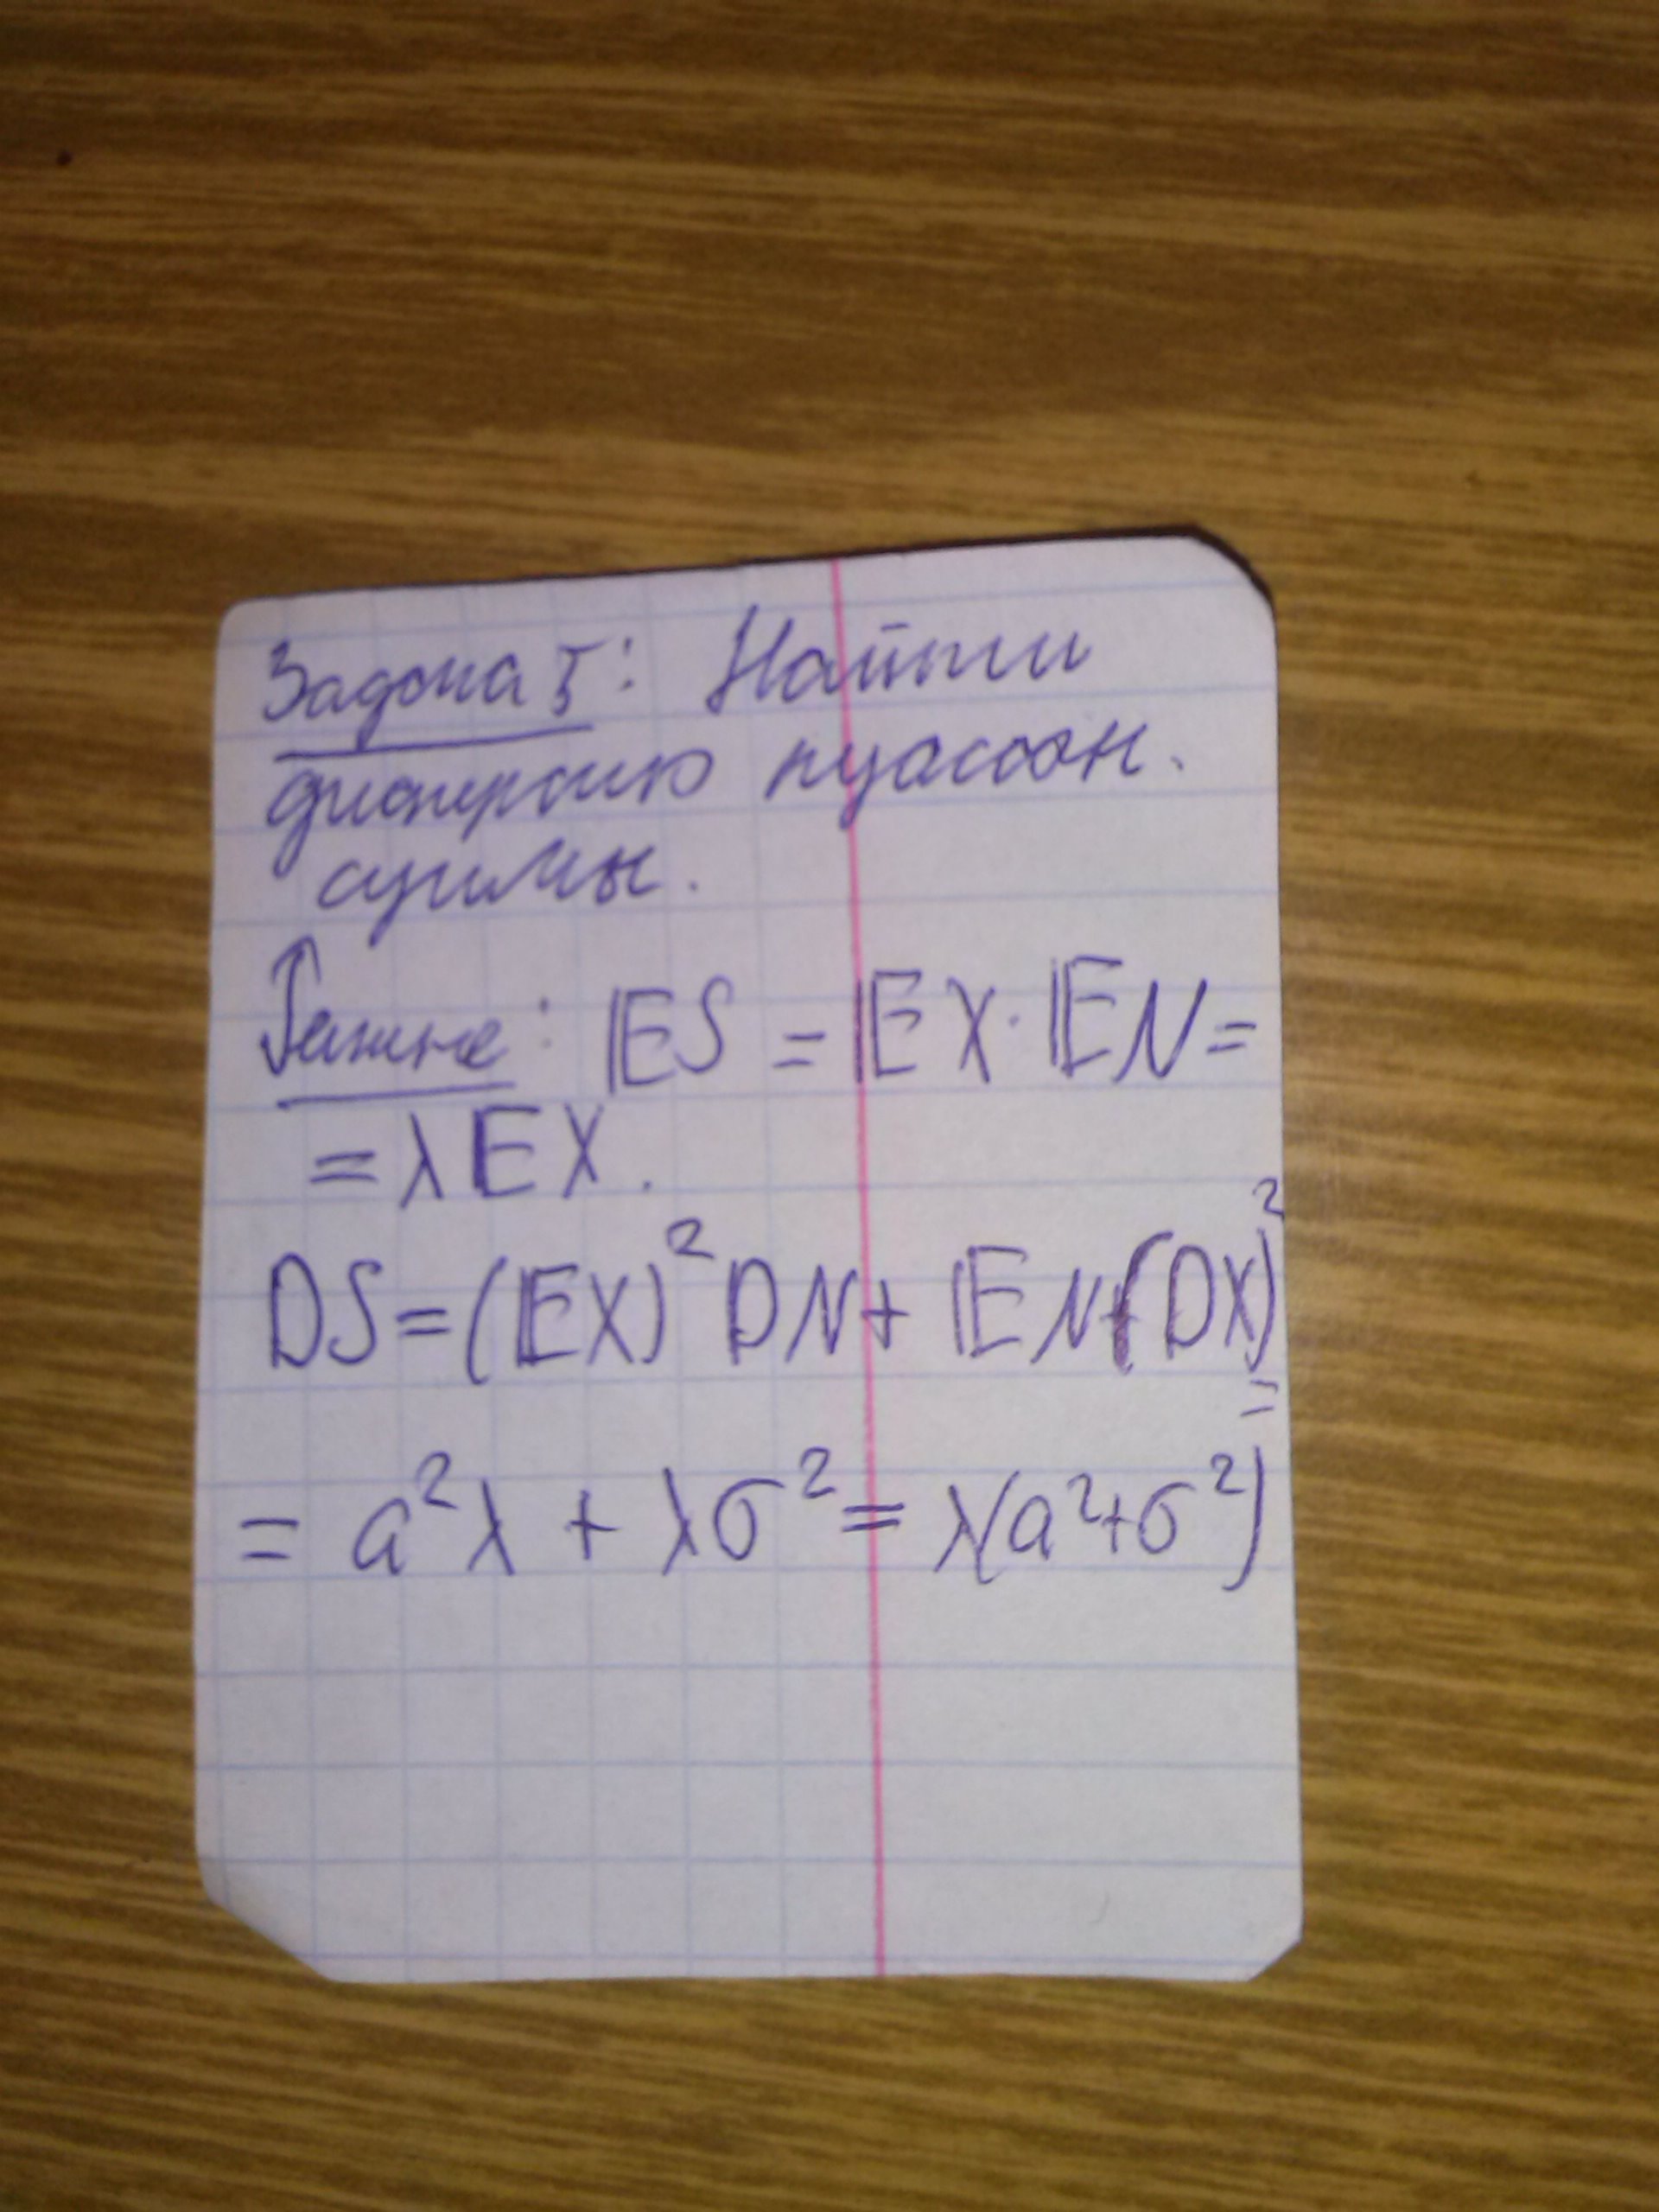 Задача 5: Найти
дисперсию пуассон.
суммы.
Решение: 𝔼S = 𝔼X · 𝔼N =
= λEX.
DS = (𝔼X)² DN + 𝔼N (DX)²
=
= a²λ + λσ² = λ(a²+σ²)